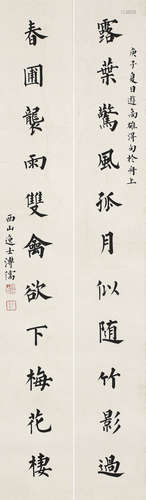 庚子夏日遊高雄得句於舟上
露葉驚風孤月似随竹影過
春圃襲雨雙禽欲下梅花棲
西山逸士溥儒